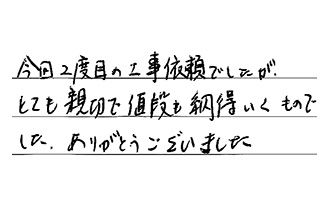 今回2度目の工事依頼でしたが.
とても親切で値段も納得いくもので
した. ありがとうございました